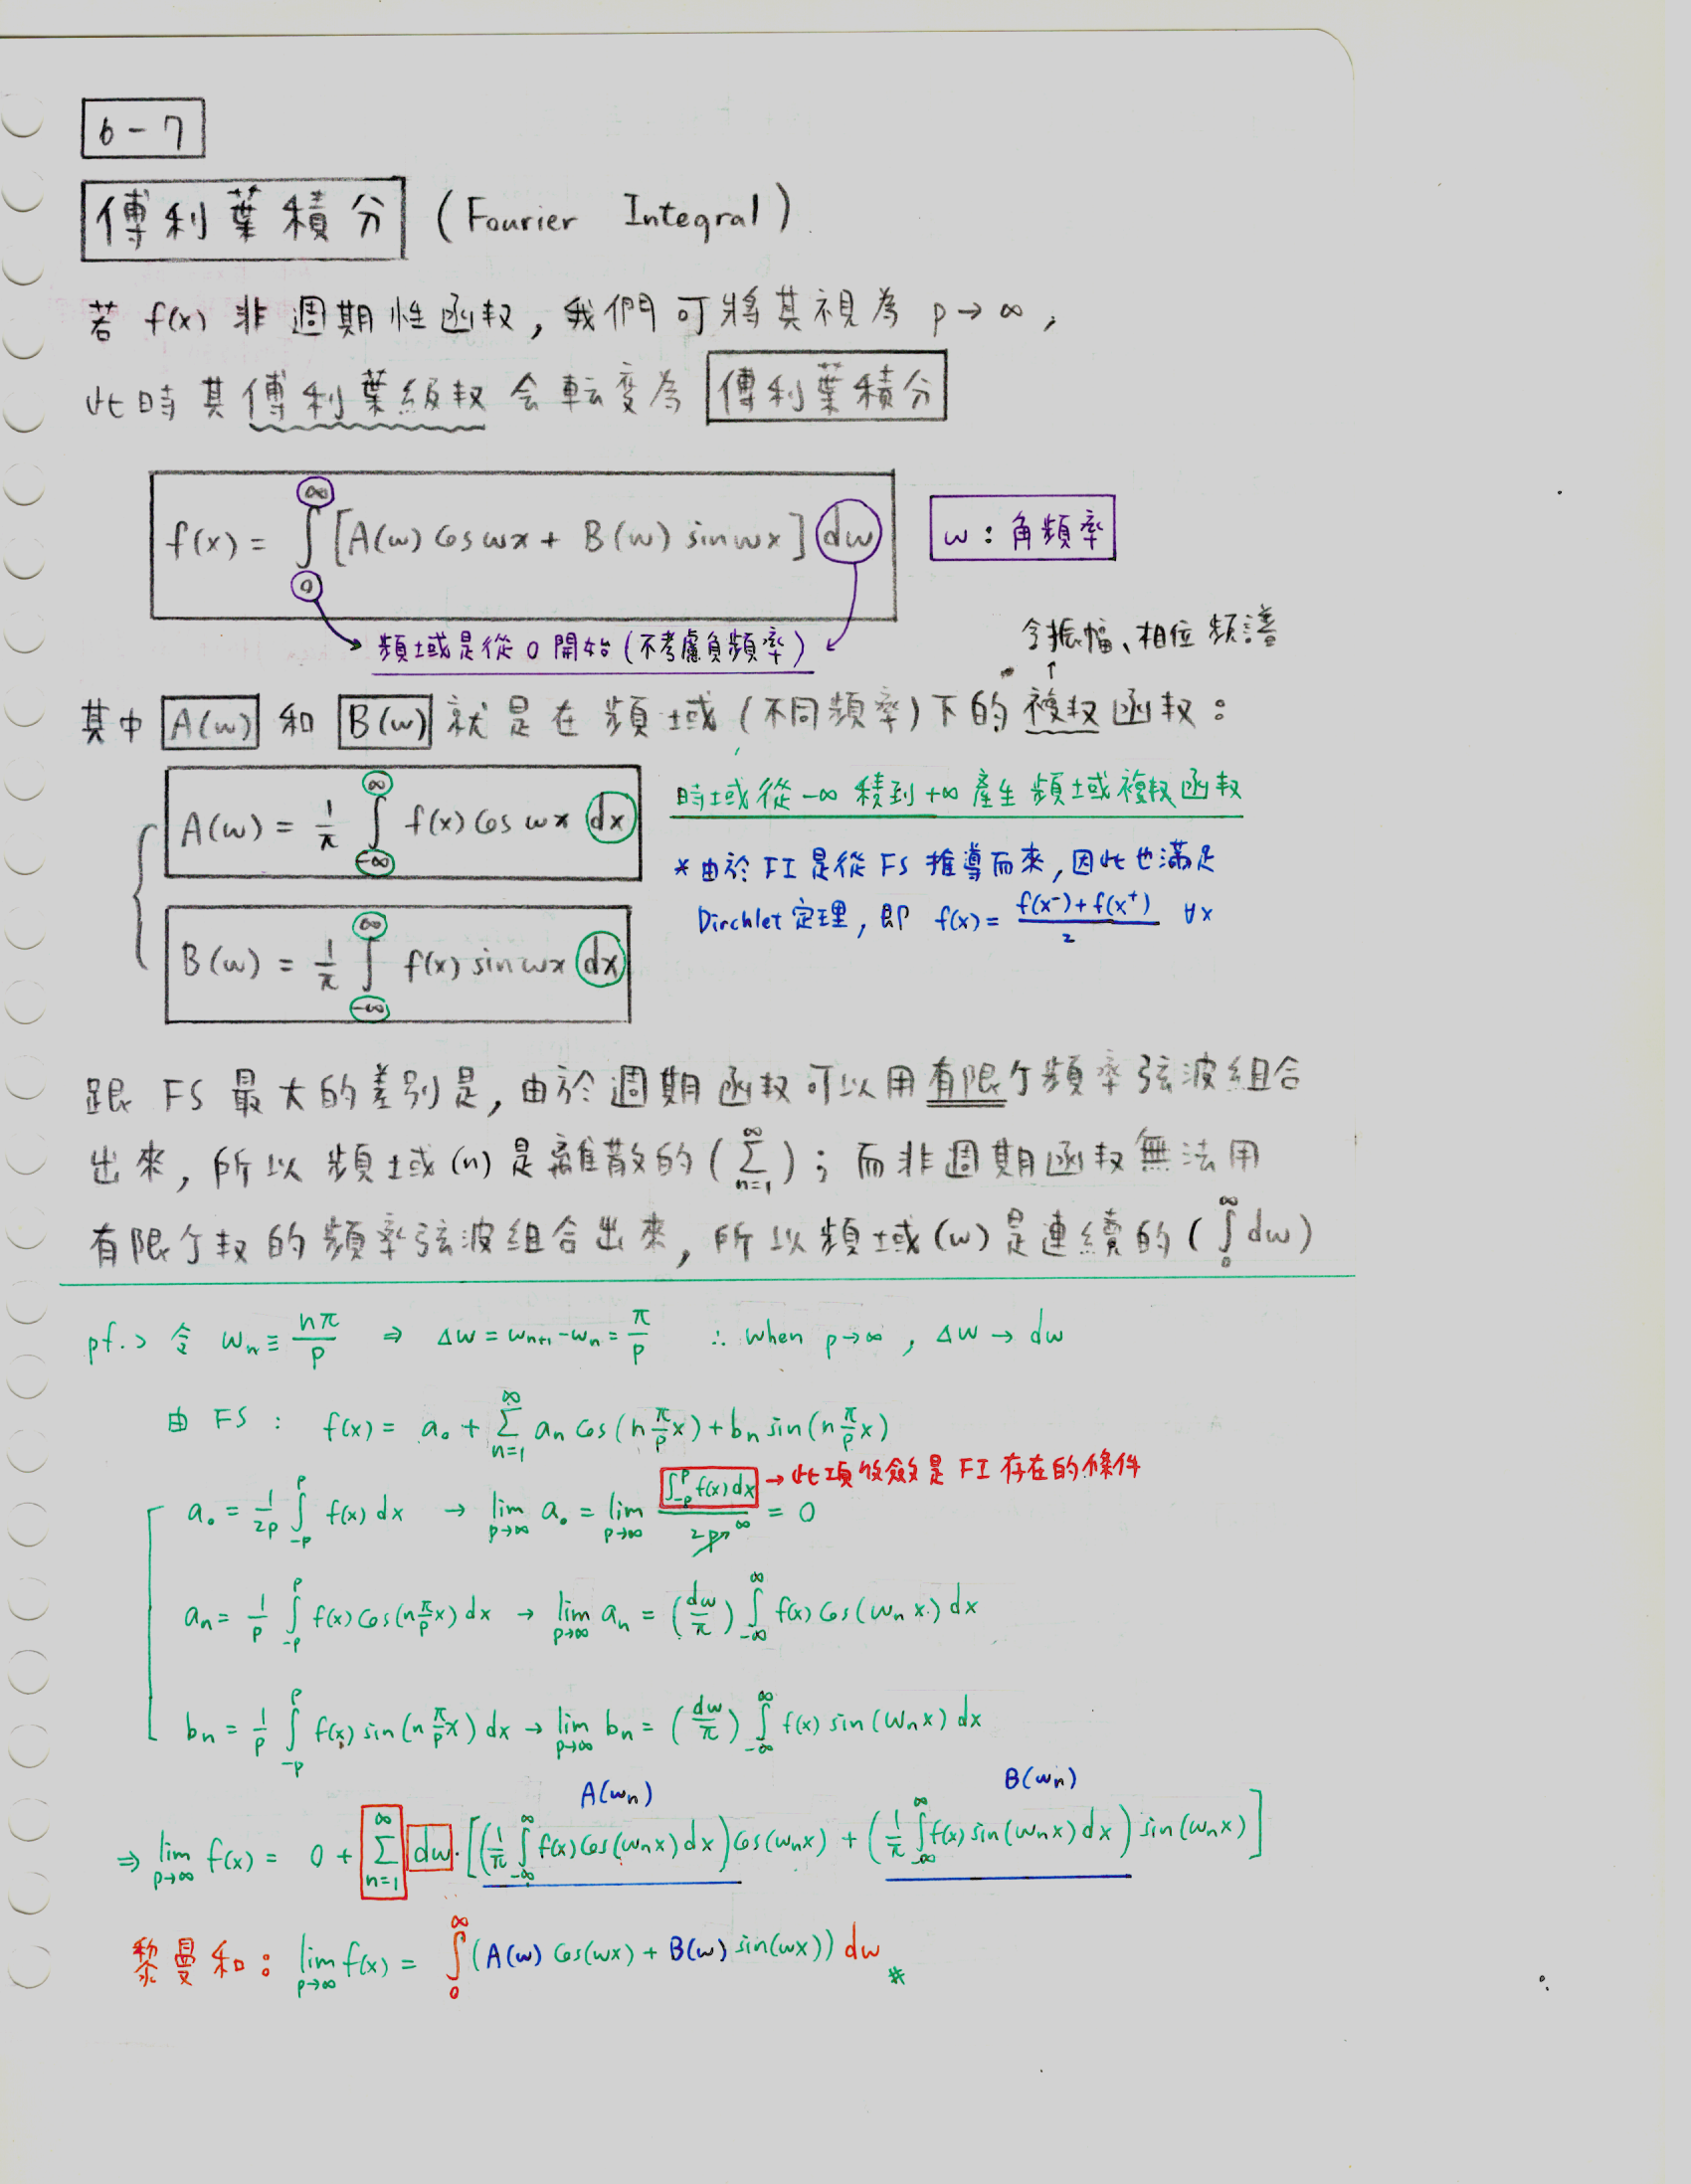 6-7
傅利葉積分 (Fourier Integral)
若 f(x) 非週期性函数, 我們可將其視為 p→∞,
此時其傅利葉級数会転変為 傅利葉積分
f(x) = ∫_0^∞ [A(w) cos wx + B(w) sin wx] dw
w : 角頻率
頻域是從 0 開始 (不考慮負頻率)
含振幅、相位頻譜
↑
其中 A(w) 和 B(w) 就是在頻域 (不同頻率) 下的複数函数 :
A(w) = 1/π ∫_{-∞}^{∞} f(x) cos wx dx
時域從 -∞ 積到 +∞ 產生頻域複数函数
* 由於 FI 是從 FS 推導而來, 因此也滿足
Dirchlet 定理, 即 f(x) = (f(x⁻)+f(x⁺))/2 ∀x
B(w) = 1/π ∫_{-∞}^{∞} f(x) sin wx dx
跟 FS 最大的差別是, 由於週期函数可以用有限个頻率弦波組合
出來, 所以頻域 (n) 是離散的 (∑_{n=1}^{∞}) ; 而非週期函数無法用
有限个数的頻率弦波組合出來, 所以頻域 (w) 是連續的 (∫_0^∞ dw)
pf.> 令 w_n ≡ nπ/p ⇒ Δw = w_{n+1} - w_n = π/p ∴ when p→∞, Δw → dw
由 FS : f(x) = a₀ + ∑_{n=1}^{∞} a_n cos(n π/p x) + b_n sin(n π/p x)
→ 此項收斂是 FI 存在的條件
a₀ = 1/2p ∫_{-p}^{p} f(x) dx → lim_{p→∞} a₀ = lim_{p→∞} (∫_{-p}^{p} f(x) dx)/(2p ↗∞) = 0
a_n = 1/p ∫_{-p}^{p} f(x) cos(n π/p x) dx → lim_{p→∞} a_n = (dw/π) ∫_{-∞}^{∞} f(x) cos(w_n x) dx
b_n = 1/p ∫_{-p}^{p} f(x) sin(n π/p x) dx → lim_{p→∞} b_n = (dw/π) ∫_{-∞}^{∞} f(x) sin(w_n x) dx
A(w_n) B(w_n)
⇒ lim_{p→∞} f(x) = 0 + ∑_{n=1}^{∞} dw · [(1/π ∫_{-∞}^{∞} f(x) cos(w_n x) dx) cos(w_n x) + (1/π ∫_{-∞}^{∞} f(x) sin(w_n x) dx) sin(w_n x)]
黎曼和 : lim_{p→∞} f(x) = ∫_0^∞ (A(w) cos(wx) + B(w) sin(wx)) dw #